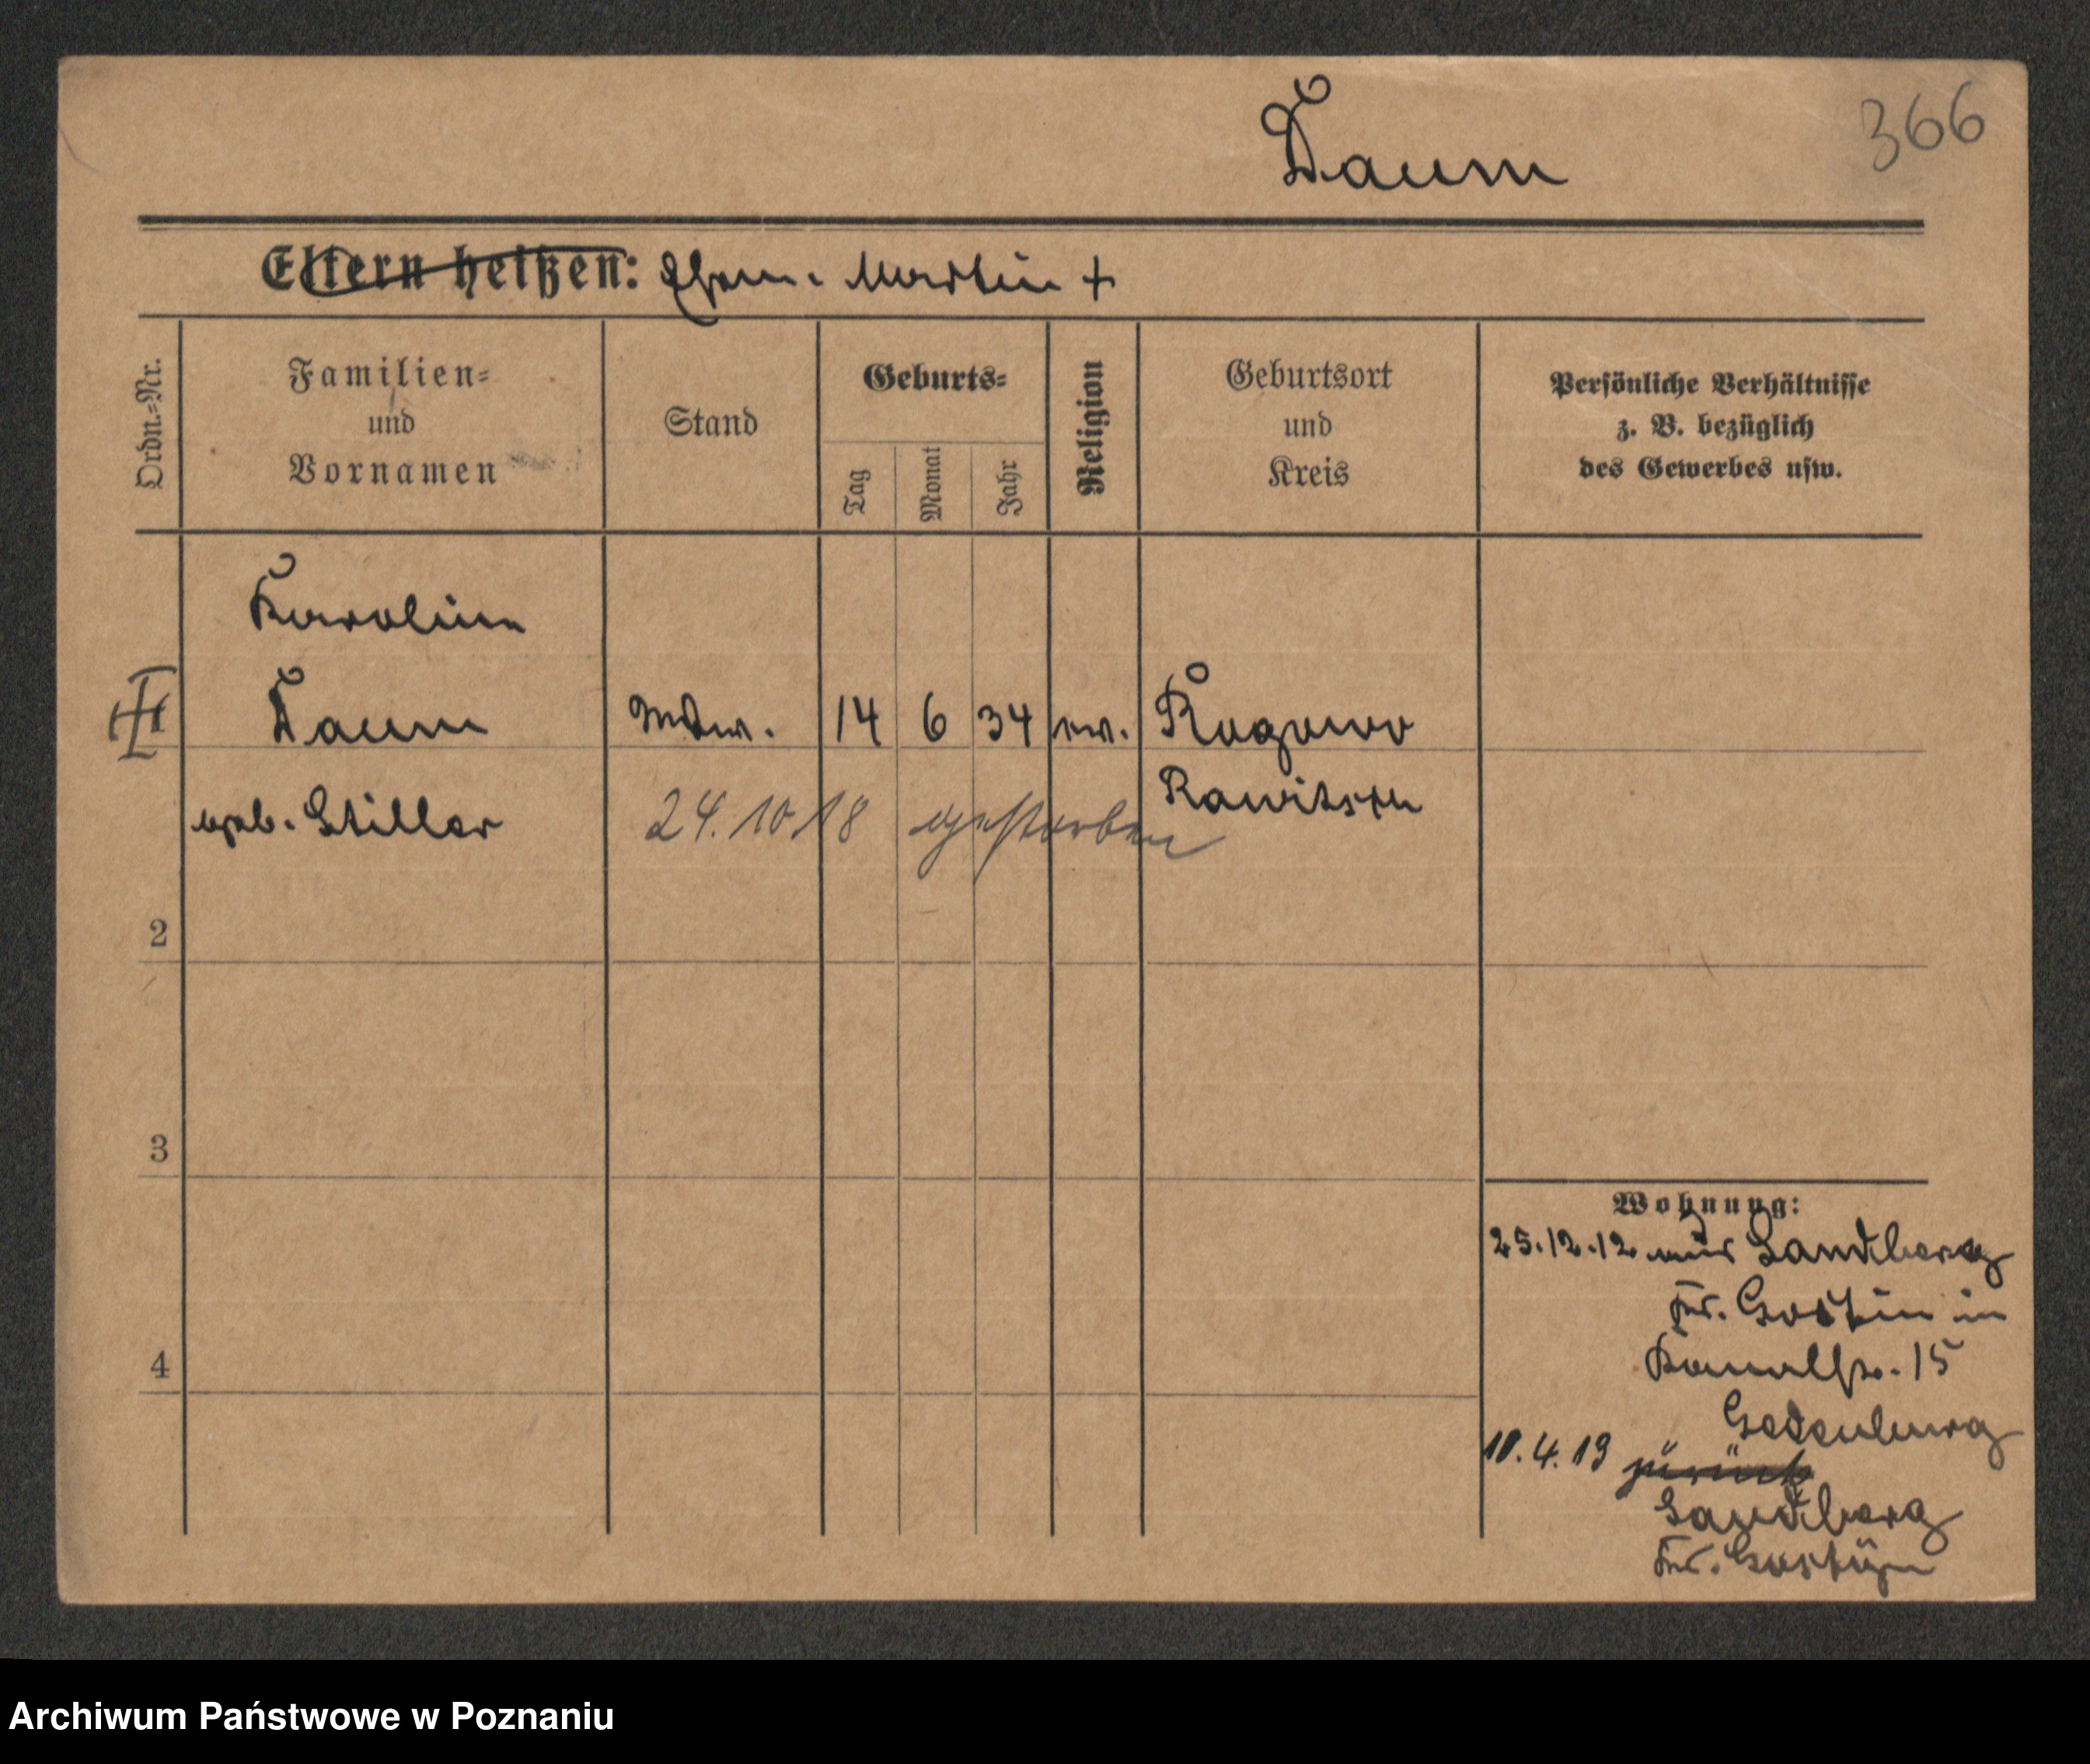 Daum
366
Eltern heißen: Ehem. Martin +
Ordn.-Nr.
Familien-
und
Vornamen
Stand
Geburts-
Tag
Monat
Jahr
Religion
Geburtsort
und
Kreis
Persönliche Verhältnisse
z. B. bezüglich
des Gewerbes usw.
Karoline
Daum
Wdw.
14
6
34
ev.
Rogowo
geb. Stiller
Rawitsch
24.10.18 gestorben
2
3
4
Wohnung:
25.12.12 aus Sandberg
Kr. Gostin in
Kanalstr. 15
10.4.13 zurück
Sandberg
Kr. Gostyn
Archiwum Państwowe w Poznaniu